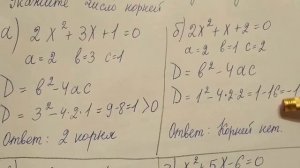 Укажите число корней
а) 2x²+3x+1=0
a=2 b=3 c=1
D=b²-4ac
D=3²-4·2·1=9-8=1>0
Ответ: 2 корня
б) 2x²+x+2=0
a=2 b=1 c=2
D=b²-4ac
D=1²-4·2·2=1-16=-1
Ответ: Корней нет.
x²+5x-6=0